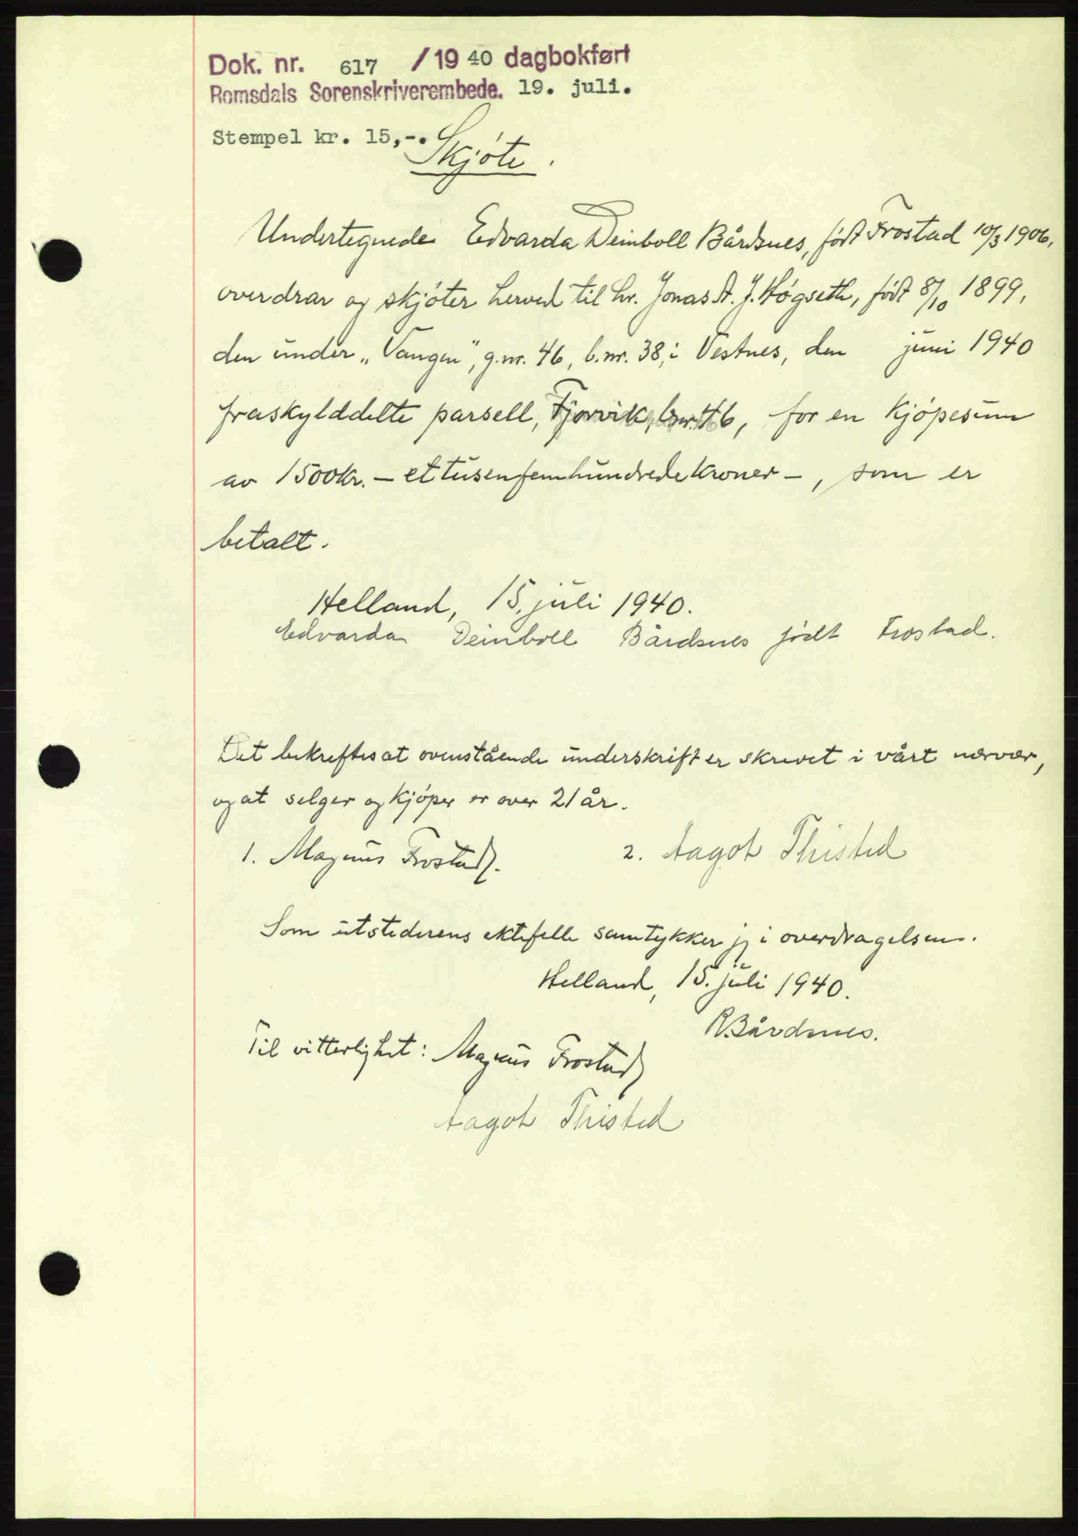 Dok. nr. 617 /1940 dagbokført
Romsdals Sorenskriverembede. 19. juli.
Stempel kr. 15,-.
Skjöte.
Undertegnede Edvarda Deinboll Bårdsnes, født Frostad 10/3 1906,
overdrar og skjöter herved til hr. Jonas A. J. Høgseth, født 8/10 1899,
den under „Vangen”, g.nr. 46, b.nr. 38, i Vestnes, den juni 1940
fraskylddelte parsell, Fjorvik, bnr. 46, for en kjöpesum
av 1500kr. — ettusenfemhundrede kroner —, som er
betalt.
Helland, 15. juli 1940.
Edvarda Deinboll Bårdsnes født Frostad.
Det bekreftes at ovenstående underskrift er skrevet i vårt nærvær,
og at selger og kjöper er over 21 år.
1. Magnus Frostad. 2. Aagot Thisted
Som utstederens ektefelle samtykker jeg i overdragelsen.
Helland, 15. juli 1940.
R. Bårdsnes.
Til vitterlighet: Magnus Frostad
Aagot Thisted